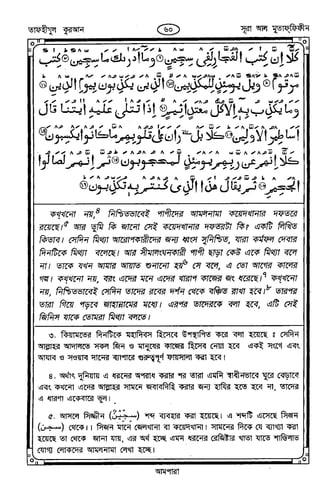 তাফহীমুল কুরআন
৬০
সূরা আল মুতাফ্‌ফিফীন
كَلَّآ اِنَّ كِتٰبَ الْفُجَّارِ لَفِيْ سِجِّيْنٍ ۞ وَمَآ اَدْرٰىكَ مَا سِجِّيْنٌ ۞ كِتٰبٌ
مَّرْقُوْمٌ ۞ وَيْلٌ يَّوْمَئِذٍ لِّلْمُكَذِّبِيْنَ ۞ الَّذِيْنَ يُكَذِّبُوْنَ بِيَوْمِ الدِّيْنِ ۞
وَمَا يُكَذِّبُ بِهٖٓ اِلَّا كُلُّ مُعْتَدٍ اَثِيْمٍ ۞ اِذَا تُتْلٰى عَلَيْهِ اٰيٰتُنَا قَالَ
اَسَاطِيْرُ الْاَوَّلِيْنَ ۞ كَلَّا بَلْ رَانَ عَلٰى قُلُوْبِهِمْ مَّا كَانُوْا يَكْسِبُوْنَ ۞
كَلَّآ اِنَّهُمْ عَنْ رَّبِّهِمْ يَوْمَئِذٍ لَّمَحْجُوْبُوْنَ ۞ ثُمَّ اِنَّهُمْ لَصَالُوا
الْجَحِيْمِ ۞ ثُمَّ يُقَالُ هٰذَا الَّذِيْ كُنْتُمْ بِهٖ تُكَذِّبُوْنَ ۞
কখ্‌খনো নয়,৪ নিশ্চিতভাবেই পাপীদের আমলনামা কয়েদখানার দফতরে
রয়েছে।৫ আর তুমি কি জানো সেই কয়েদখানার দফতরটা কি? একটি লিখিত
কিতাব। সেদিন মিথ্যা আরোপকারীদের জন্য ধ্বংস সুনিশ্চিত, যারা কর্মফল দেবার
দিনটিকে মিথ্যা বলেছে। আর সীমালংঘনকারী পাপী ছাড়া কেউ একে মিথ্যা বলে
না। তাকে যখন আমার আয়াত শুনানো হয়৬ সে বলে, এ তো আগের কালের
গল্প। কখ্‌খনো নয়, বরং এদের মনে এদের খারাপ কাজের জং ধরেছে।৭ কখ্‌খনো
নয়, নিশ্চিতভাবেই সেদিন তাদের রবের দর্শন থেকে বঞ্চিত রাখা হবে।৮ তারপর
তারা গিয়ে পড়বে জাহান্নামের মধ্যে। এরপর তাদেরকে বলা হবে, এটি সেই
জিনিস যাকে তোমরা মিথ্যা বলতে।
৩. কিয়ামতের দিনটিকে মহাদিবস হিসেবে উপস্থাপিত করে বলা হয়েছে : সেদিন
আল্লাহর আদালতে সকল জিন ও মানুষের কাজের হিসেব নেয়া হবে একই সংগে এবং
আযাব ও সওয়াব দানের ব্যাপারে গুরুত্বপূর্ণ ফায়সালা করা হবে।
৪. অর্থাৎ দুনিয়ায় এ ধরনের অপরাধ করার পর তারা এমনি স্বাধীনভাবে ঘুরে বেড়াবে
এবং কখনো এদের আল্লাহর সামনে জবাবদিহি করার জন্য হাযির হতে হবে না, তাদের
এ ধারণা একেবারে ভুল।
৫. আসলে সিজ্জীন (سِجِّيْنٌ) শব্দ ব্যবহার করা হয়েছে। এ শব্দটি এসেছে সিজন
(سجن) থেকে।। সিজন মানে জেলখানা বা কয়েদখানা। সামনের দিকে যে ব্যাখ্যা করা
হয়েছে তা থেকে জানা যায়, এর অর্থ হচ্ছে এমন ধরনের রেজিষ্টার খাতা যাতে শাস্তিলাভ
যোগ্য লোকদের আমলনামা লেখা হচ্ছে।
আমপারা